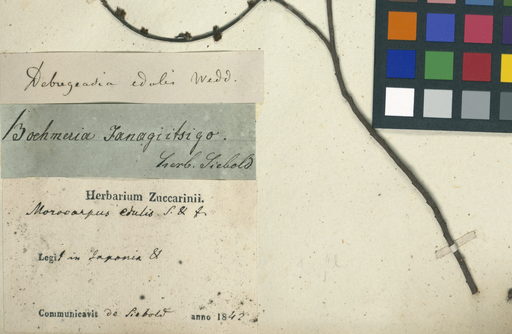 Debregeasia edulis Wedd.
Boehmeria Janagiitsigo.
herb. Siebold
Herbarium Zuccarinii.
Morocarpus edulis S. & Z.
Legit in Japonia
Communicavit de Siebold anno 1842